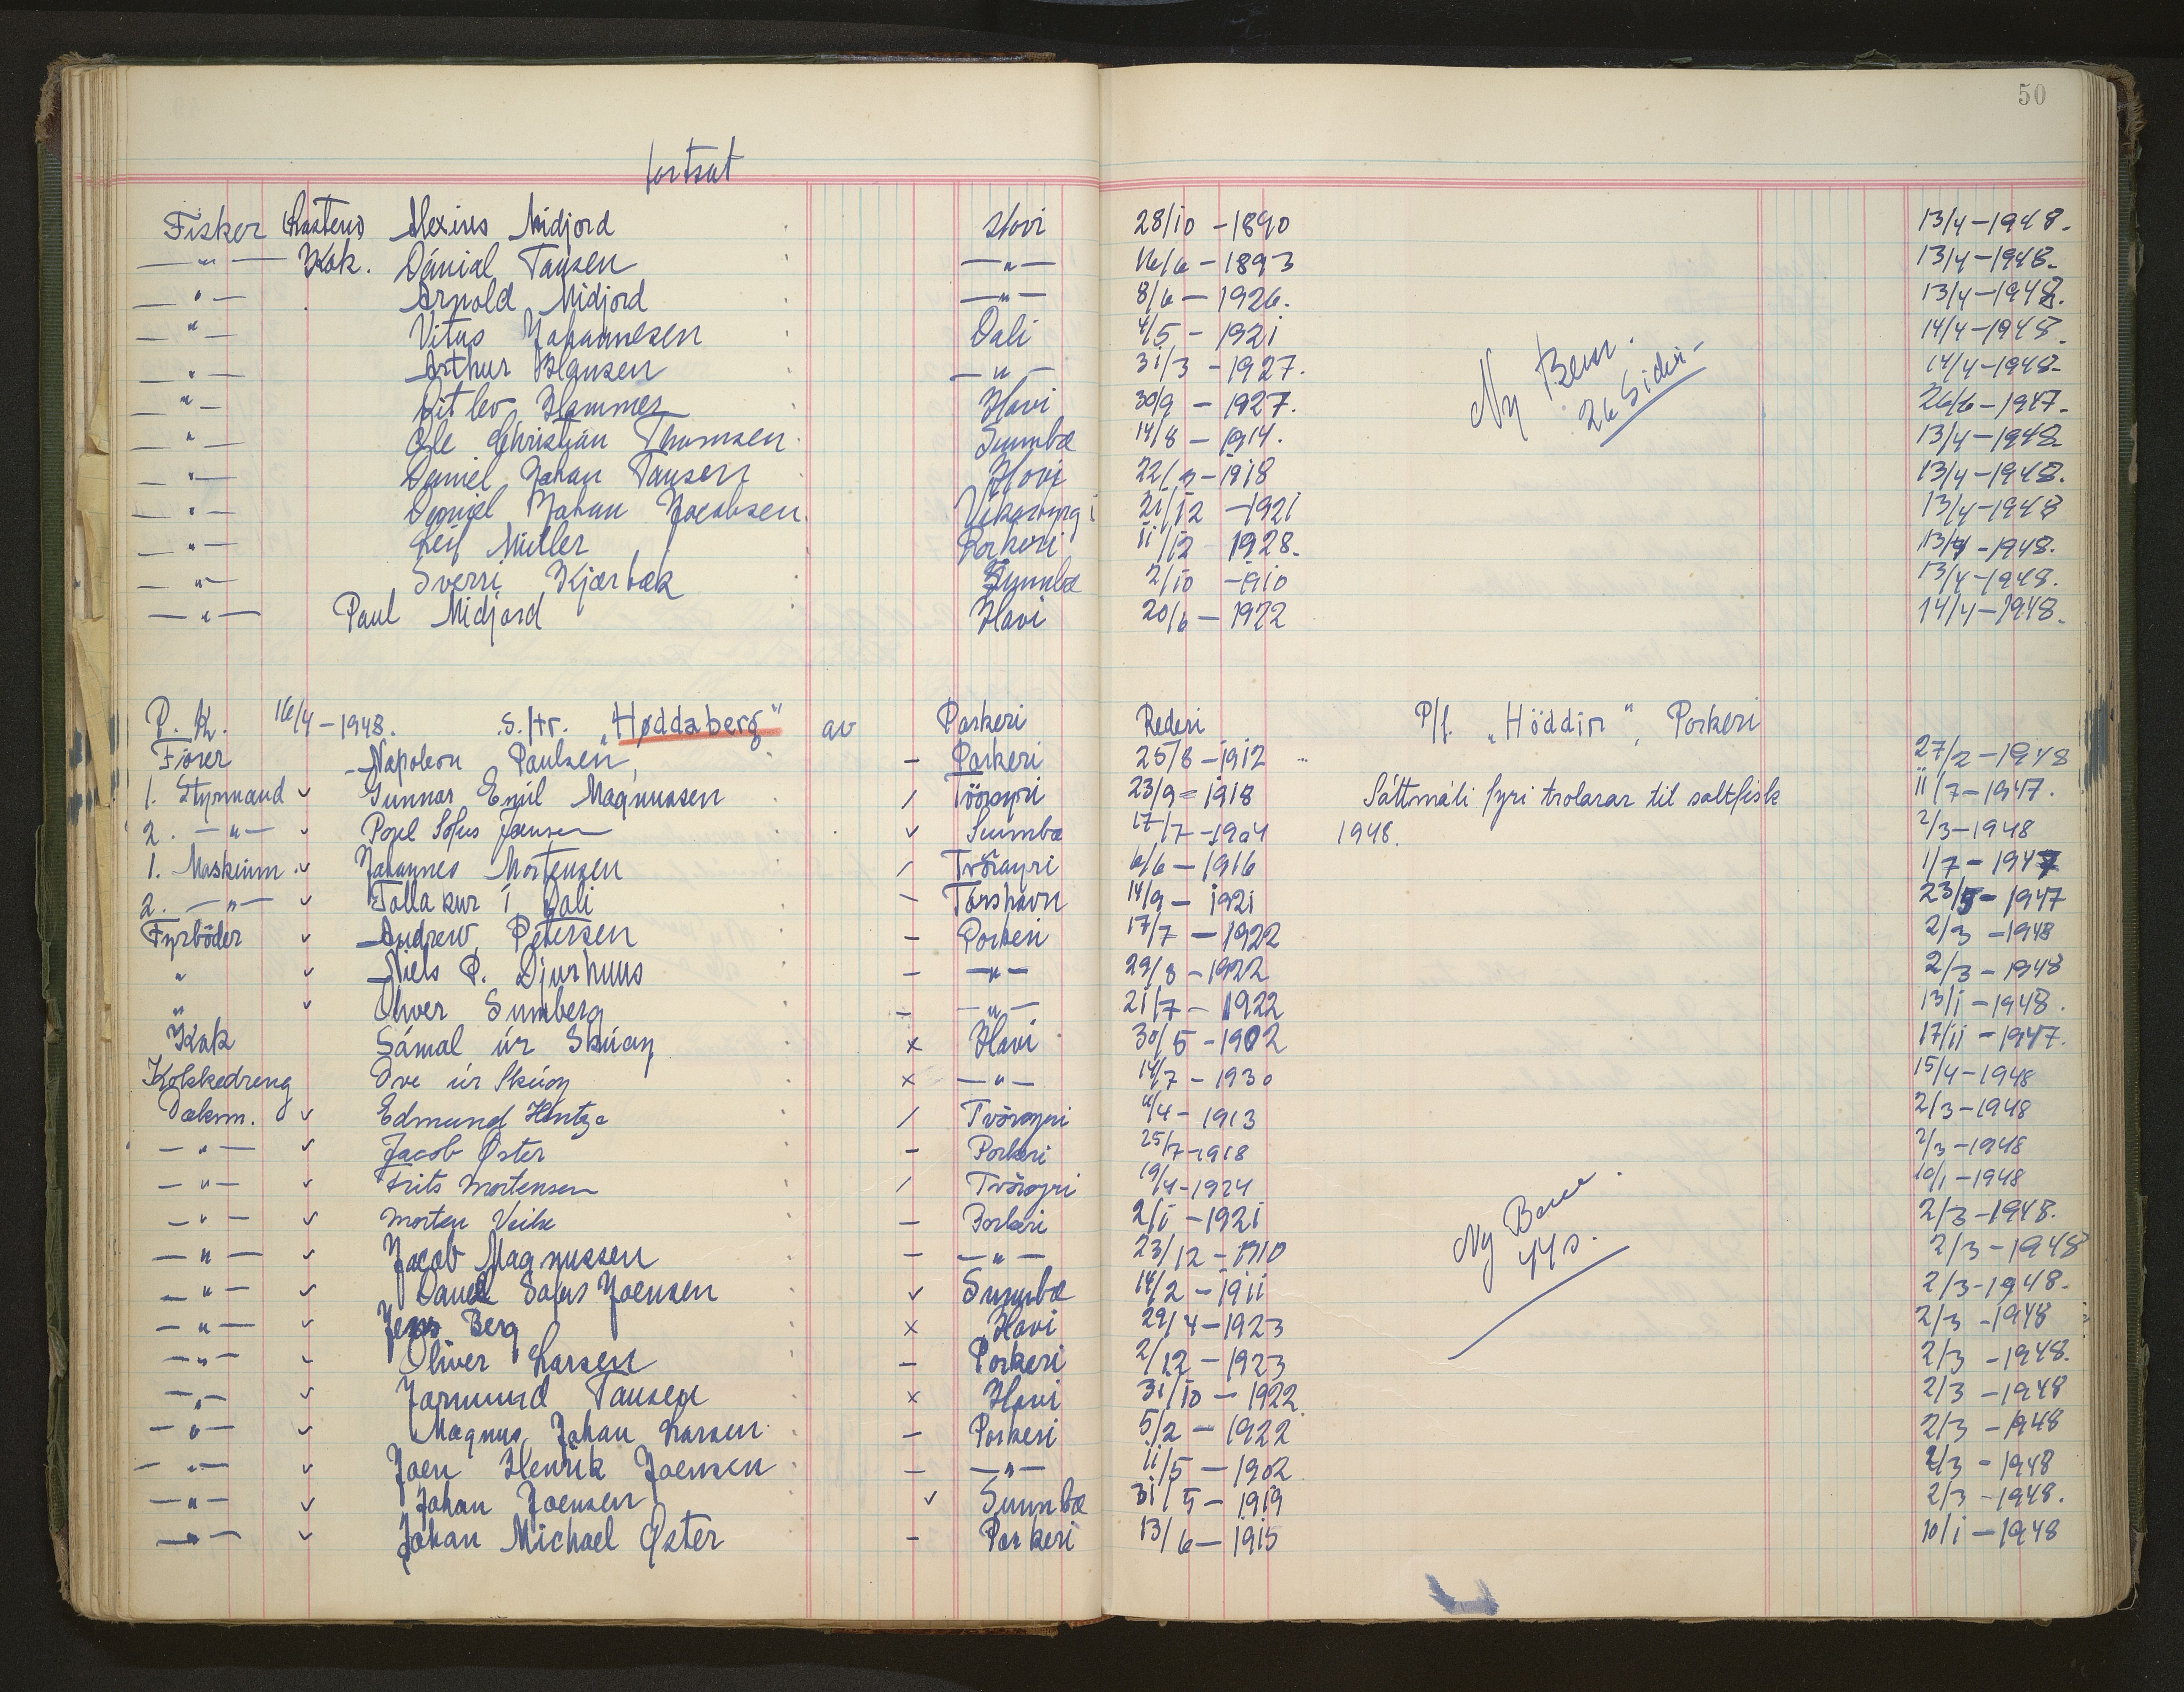 50
fortsat
Fisker Alexius Midjord Hovi 28/10 - 1890 13/4 - 1948.
— " — Kok. Dánial Tausen — " — 16/6 - 1893 13/4 - 1948.
— " — Arnold Midjord — " — 8/6 - 1926. 13/4 - 1948.
— " — Vitus Johannesen Dali 4/5 - 1921 14/4 - 1948.
— " — Arthur — " — 31/3 - 1927. 14/4 - 1948.
— " — Ditlev Hammer Hovi 30/9 - 1927. 26/6 - 1947.
Ny Bem.
26 Sider
— " — Ole Christian Thomsen Sumbø 14/8 - 1914. 13/4 - 1948
— " — Daniel Johan Tausen Hovi 13/4 - 1948.
— " — Daniel Johan Jacobsen 21/12 - 1921 13/4 - 1948
— " — Leif Müller Porkeri 11/12 1928. 13/4 - 1948.
— " — Sverri Kjærbæk Sumbø 2/10 - 1910 13/4 - 1948.
— " — Paul Midjord Hovi 20/6 - 1922 14/4 - 1948.
P. K. 16/4 - 1948. s./tr. "Høddaberg" av Porkeri Rederi P/f. "Höddin", Porkeri
Fører Napoleon Paulsen, — Porkeri 25/8 - 1912 27/2 - 1948
1. Styrmand ✓ Gunnar Emil Magnussen / 23/9 - 1918 Sáttmáli fyri trolarar til saltfisk 11/7 - 1947.
2. — " — ✓ Poul Sofus Joensen ✓ Sumbø 17/7 - 1904 1948. 2/3 - 1948
1. Maskinm. ✓ Johannes Mortensen / Tvöroyri 6/6 - 1916 1/7 - 1947
2. — " — ✓ Tollakur í Dali — Torshavn 14/9 - 1921 23/5 - 1947
Fyrböder ✓ Andrew Petersen — Porkeri 17/7 - 1922 2/3 - 1948
" ✓ Niels P. Djurhuus — — " — 29/8 - 1922 2/3 - 1948
" ✓ Oliver Sumberg — — " — 21/7 - 1922 13/1 - 1948.
Kok Sámal úr Skúoy x Hovi 30/5 - 1902 17/11 - 1947.
Kokkedreng Ove úr Skúoy x — " — 14/7 - 1930 15/4 - 1948
Dækm. ✓ Edmund Hentze / Tvöroyri 4/4 - 1913 2/3 - 1948
— " — ✓ Jacob Øster — Porkeri 25/7 - 1918 2/3 - 1948
— " — ✓ Frits Mortensen / Tvöroyri 19/4 - 1924 10/1 - 1948
— " — ✓ Morten Veihe — Porkeri 2/1 - 1921 2/3 - 1948.
Ny
44 s.
— " — ✓ Jacob Magnussen — — " — 23/12 - 1910 2/3 - 1948
— " — ✓ Daniel Sofus Joensen ✓ Sumbø 14/2 - 1911 2/3 - 1948.
— " — ✓ Jens Berg x Hovi 29/4 - 1923 2/3 - 1948
— " — ✓ Oliver Larsen — Porkeri 2/12 - 1923 2/3 - 1948.
— " — ✓ Jormund Tausen x Hovi 31/10 - 1922 2/3 - 1948
— " — ✓ Magnus Johan Larsen — Porkeri 5/2 - 1922 2/3 - 1948
— " — ✓ Joen Henrik Joensen — — " — 11/5 - 1902 2/3 - 1948
— " — ✓ Johan Joensen ✓ Sumbø 31/5 - 1919 2/3 - 1948.
— " — ✓ Johan Michael Øster — Porkeri 13/6 - 1915 10/1 - 1948